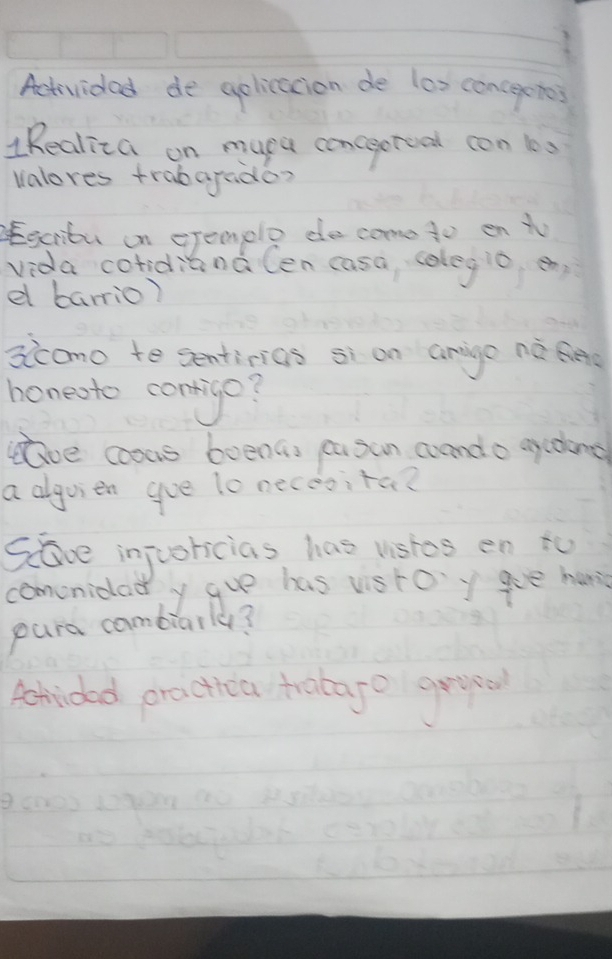 Actividad de aplicacion de los conceptos
1 Realiza un mapa conceptual con los
valores trabajados
2 Escriba un ejemplo de como tu en tu
vida cotidiana (en casa, colegio, en
el barrio)
3 ¿como te sentirias si un amigo no fuera
honesto contigo?
4 ¿Que cosas buenas pasan cuando ayudamos
a alguien que lo necesita?
5 ¿Que injusticias has vistos en tu
comunidad y que has visto y que harias
para cambiarla?
Actividad practica trabajo grupal